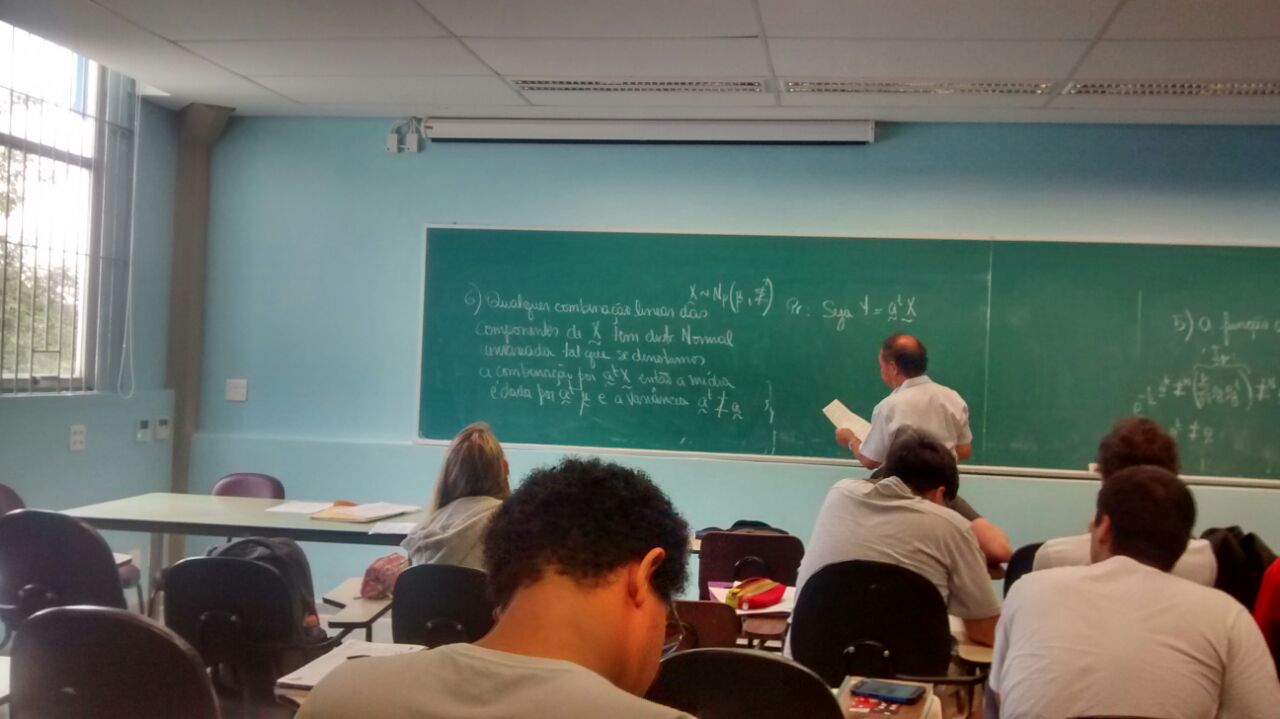 6) Qualquer combinação linear das
componentes de X tem distr Normal
univariada tal que se denotamos
a combinação por aᵗX então a média
é dada por aᵗμ e a variância aᵗΣa
X ~ Nₚ(μ, Σ) Pr: Seja Y = aᵗX
5) A função